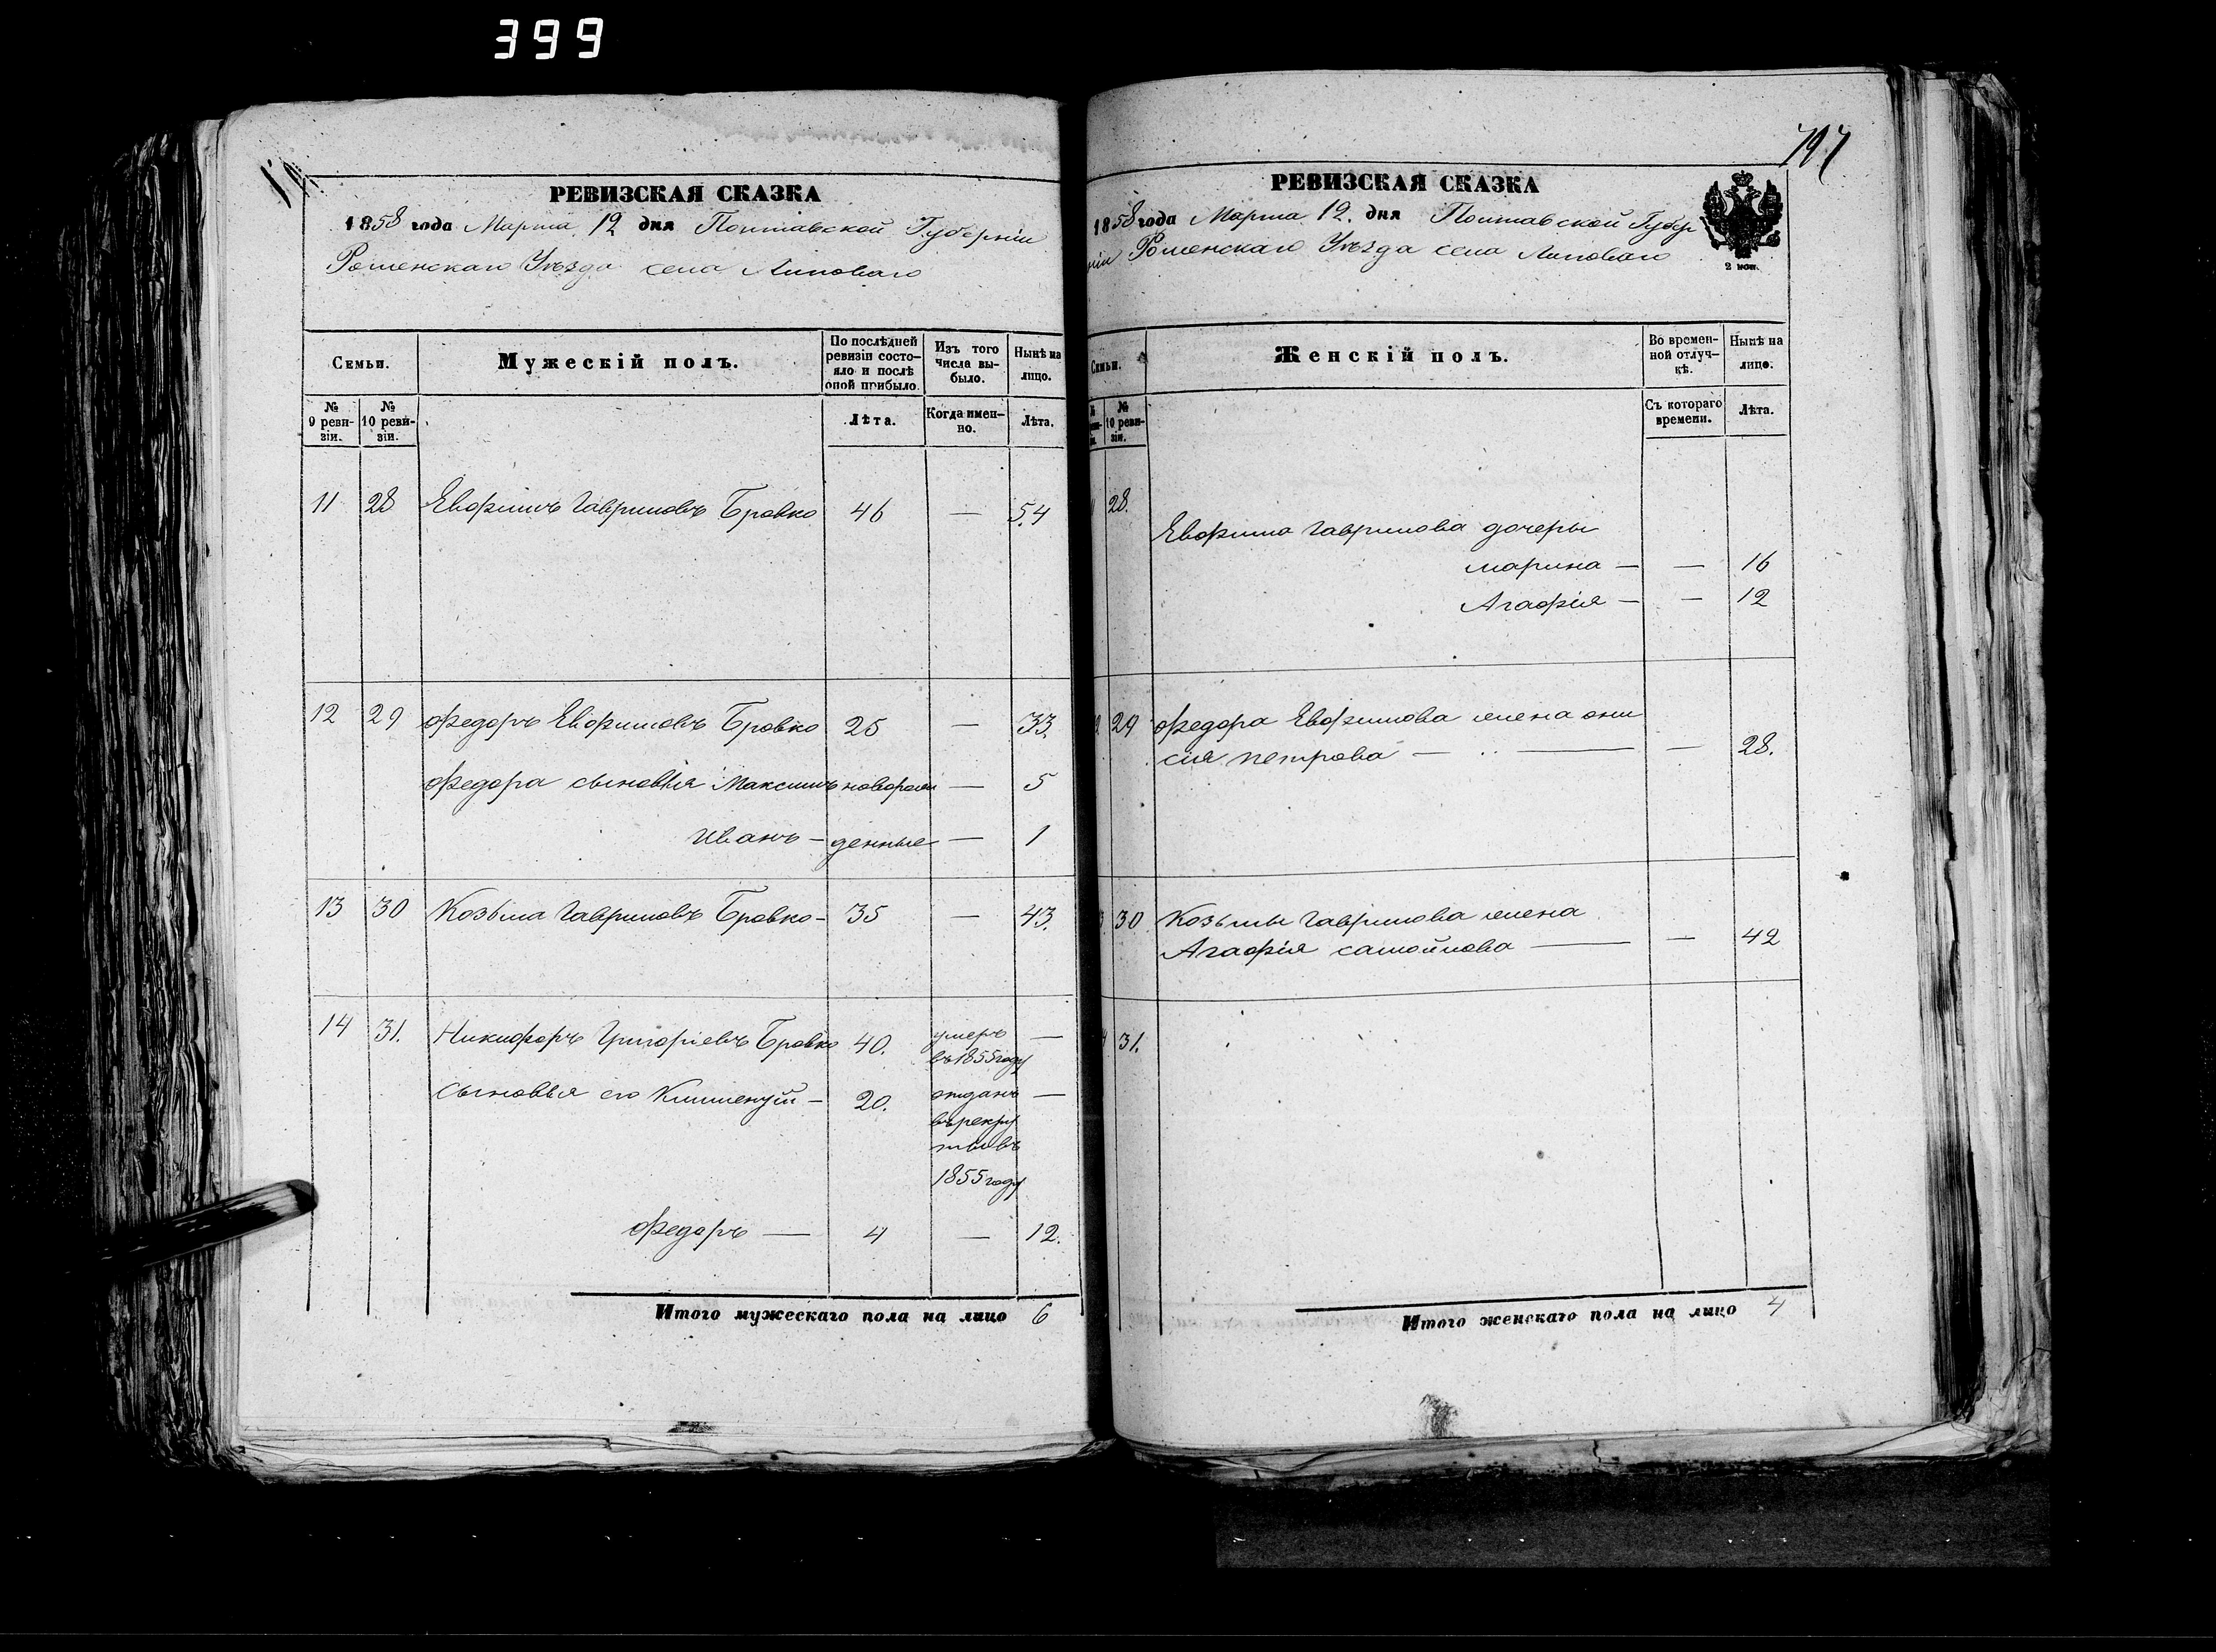 399
РЕВИЗСКАЯ СКАЗКА
1858 года Марта 12 дня Полтавской Губерніи
Роменскаго Уѣзда села Липоваго
Семьи.
Мужескій полъ.
По послѣдней ревизіи состояло и послѣ оной прибыло.
Изъ того числа выбыло.
Нынѣ на лицо.
№ 9 ревизіи.
№ 10 ревизіи.
Лѣта.
Когда именно.
Лѣта.
11 28 Евфимъ Гавриловъ Бровко 46 — 54
12 29 Федоръ Евфимовъ Бровко 25 — 33.
Федора сыновья Максимъ новорож — 5
Иванъ — денные — 1
13 30 Козьма Гавриловъ Бровко — 35 — 43.
14 31. Никифоръ Григоріевъ Бровко 40. умеръ —
въ 1855 году
Сыновья его Климентій — 20. отданъ —
въ рекру
ты въ
1855 году
Федоръ — 4 — 12.
Итого мужескаго пола на лицо 6
РЕВИЗСКАЯ СКАЗКА
1858 года Марта 12. дня Полтавской Губер
ніи Роменскаго Уѣзда села Липоваго
2 коп.
Семьи.
Женскій полъ.
Во временной отлучкѣ.
Нынѣ на лицо.
№ 10 ревизіи.
Съ котораго времени.
Лѣта.
28.
Евфима Гаврилова дочери
Марина — — 16
Агафія — — 12
29 Федора Евфимова жена Они
сія Петрова — — — 28.
30 Козьмы Гаврилова жена
Агафія Самойлова — — 42
31.
Итого женскаго пола на лицо 4